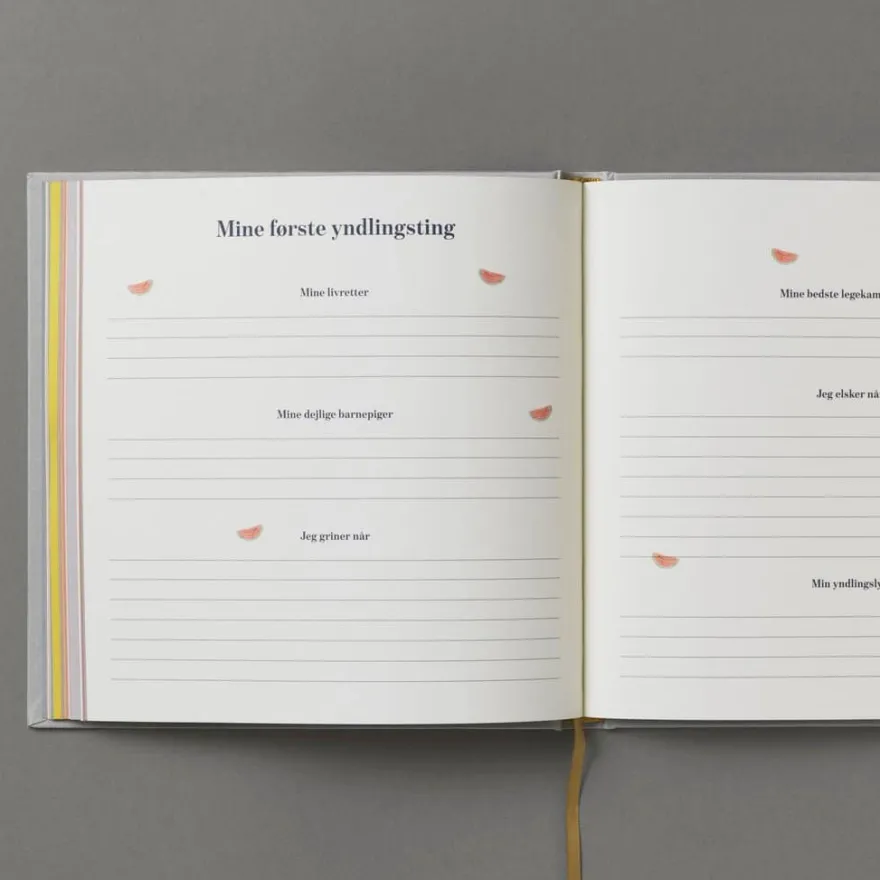 Mine første yndlingsting
Mine livretter
Mine dejlige barnepiger
Jeg griner når
Mine bedste legekam
Jeg elsker nå
Min yndlingsly